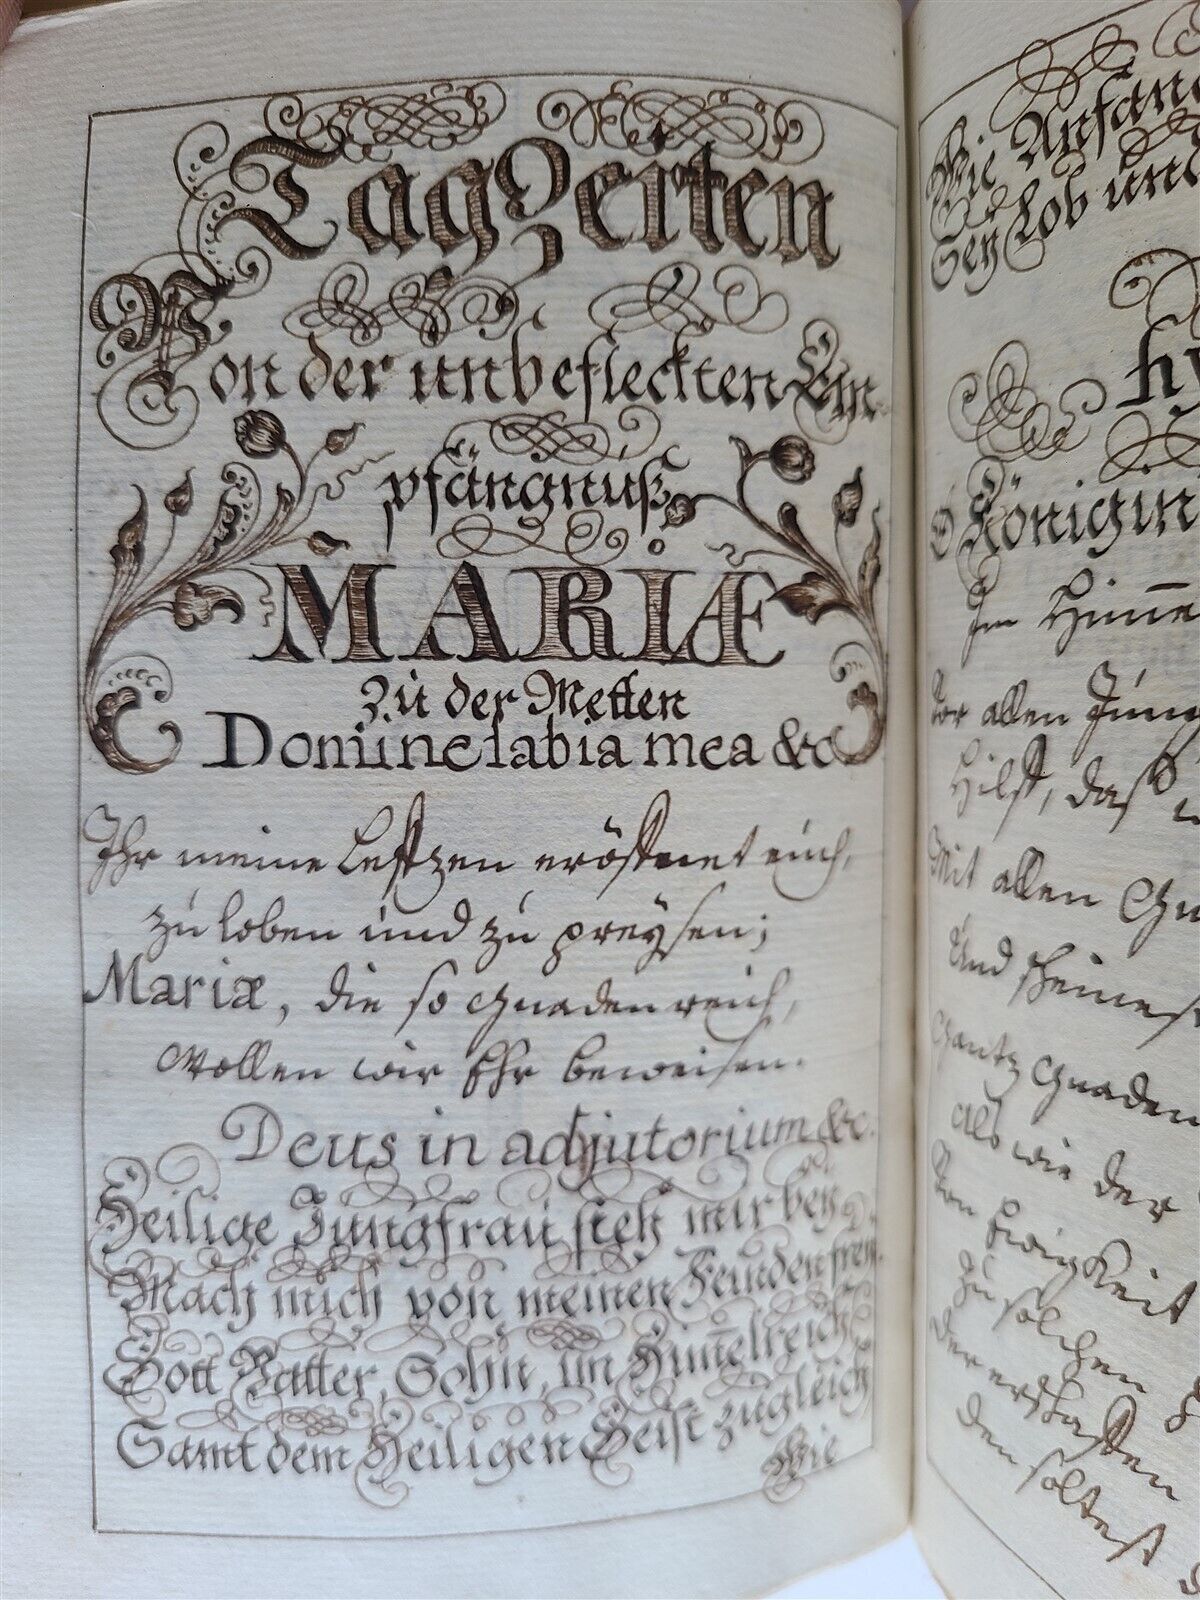 Tagzeiten
Von der unbefleckten Em-
pfängnuß
MARIÆ
Zu der Metten
Domine labia mea &c
Ihr meine Lefftzen eröffnet euch,
zu loben und zu preÿsen;
Mariæ, die so Gnadenreich,
wollen wir Ehr beweisen.
Deus in adjutorium &c.
Heilige Jungfrau steh mir bey
Mach mich von meinen Feinden frey.
Gott Vatter, Sohn, im Him̄elreich
Samt dem Heiligen Geist zugleich
Wie
Wie Anfang
Sey Lob und
hy
O Königin
Im Him̄e
Vor allen Jung
Hilff, daß
Mit allen Gn
Und scheines
Gantz Gnaden
als wie der
Von Ewigkeit
Zu solchen
der erschaffen
den soltest